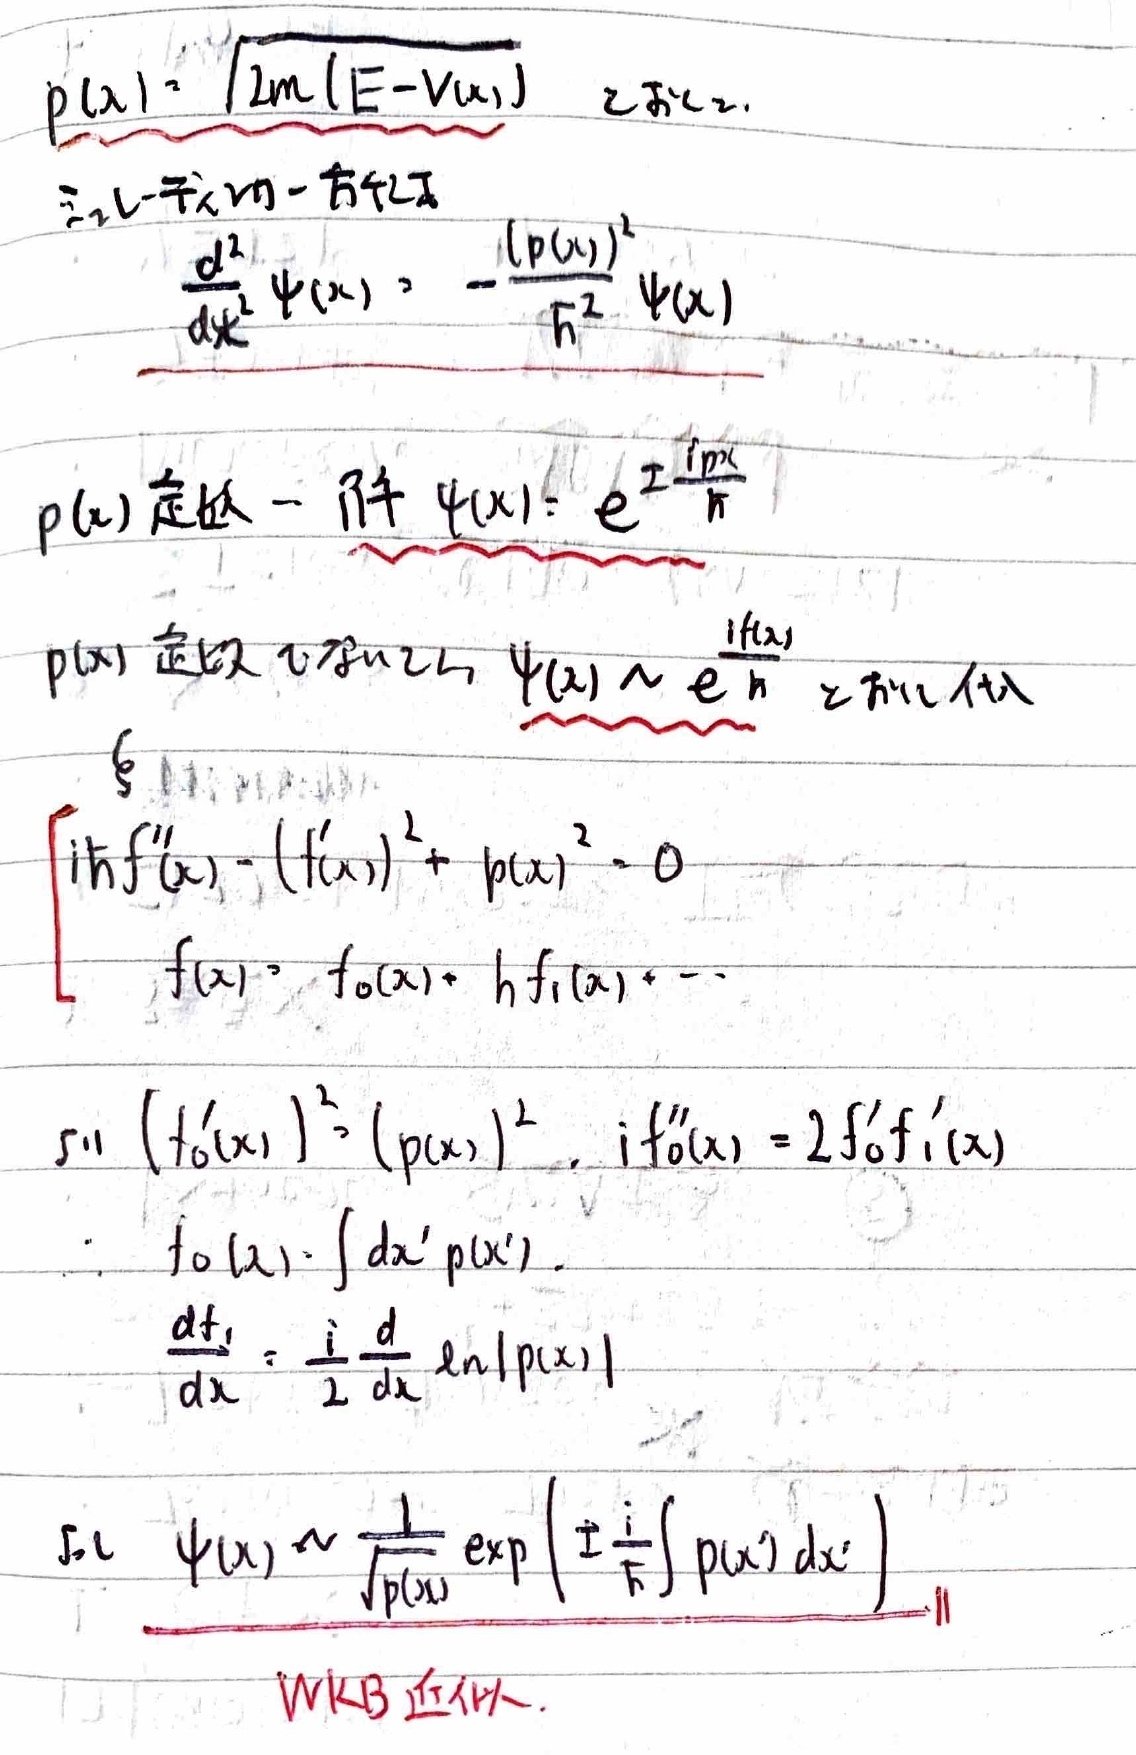 p(x) = √2m(E-V(x)) とおくと.
シュレーディンガー方程式
d²/dx² ψ(x) = - (p(x))²/ħ² ψ(x)
p(x) 定数 - 解 ψ(x) = e^{± ipx/ħ}
p(x) 定数でないとき ψ(x) ~ e^{if(x)/ħ} とおいて代入
iħf''(x) - (f'(x))² + p(x)² = 0
f(x) = f₀(x) + ħf₁(x) + ...
より (f₀'(x))² = (p(x))², if₀''(x) = 2f₀'f₁'(x)
∴ f₀(x) = ∫dx' p(x').
df₁/dx = i/2 d/dx ln|p(x)|
よって ψ(x) ~ 1/√p(x) exp(± i/ħ ∫ p(x') dx')
WKB 近似.